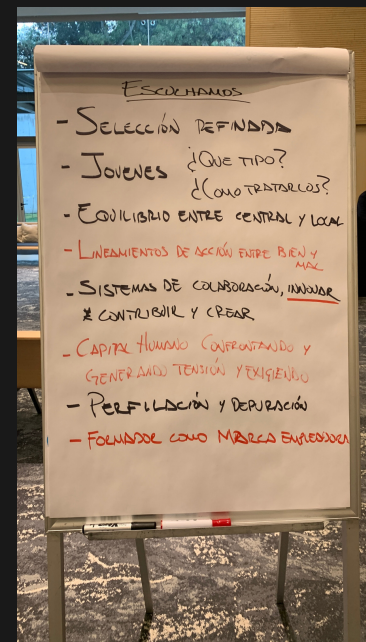 ESCUCHAMOS
- SELECCIÓN DEFINADA
- JOVENES ¿QUE TIPO?
¿COMO TRATARLOS?
- EQUILIBRIO ENTRE CENTRAL Y LOCAL
- LINEAMIENTOS DE ACCIÓN ENTRE BIEN Y
MAL
- SISTEMAS DE COLABORACIÓN, INNOVAR
CONTRIBUIR Y CREAR
- CAPITAL HUMANO CONFRONTANDO Y
GENERANDO TENSIÓN Y EXIGIENDO
- PERFILACIÓN Y DEPURACIÓN
- FORMADOR COMO MARCA EMPLEADORA